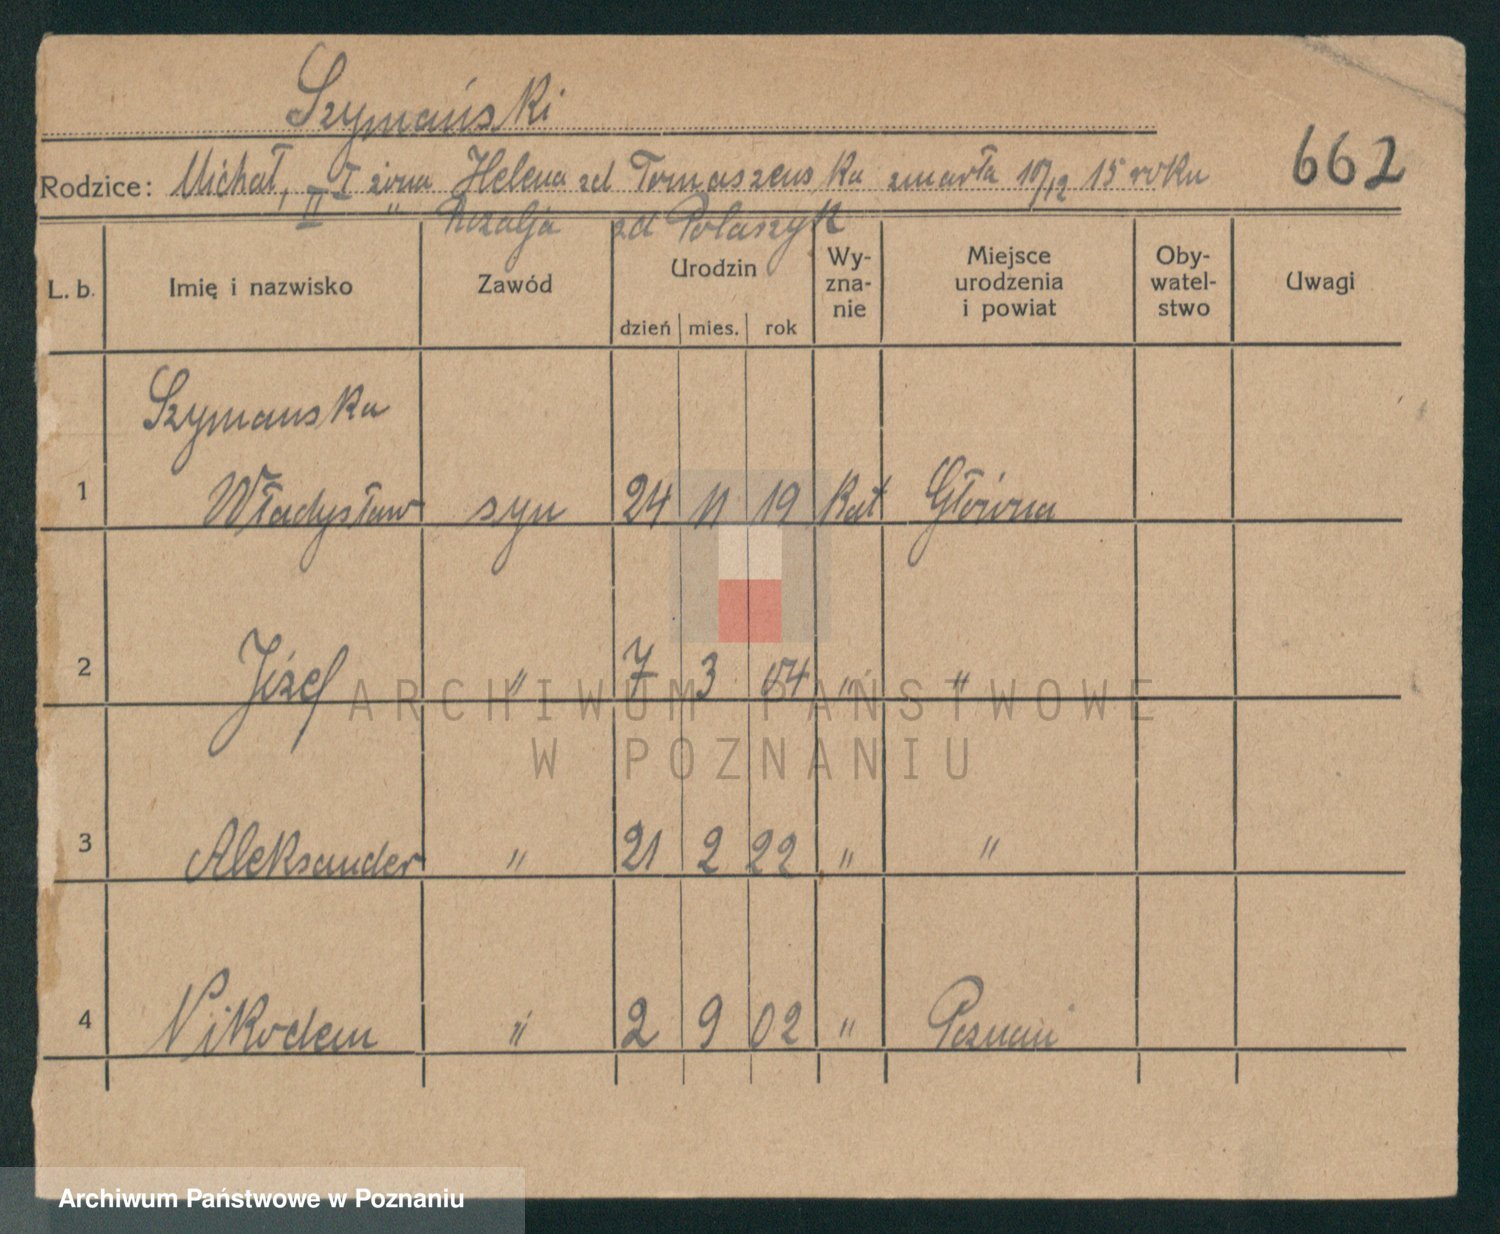 Szymański
662
Rodzice: Michał, I żona Helena zd Tomaszewska zmarła 10/12 15 roku
II " Rozalja zd Polaszyk
L. b. Imię i nazwisko Zawód Urodzin dzień mies. rok Wy-zna-nie Miejsce urodzenia i powiat Oby-watel-stwo Uwagi
Szymanska
1 Władysław syn 24 11 19 Kat Główna
2 Józef " 7 3 04 " "
ARCHIWUM PAŃSTWOWE
W POZNANIU
3 Aleksander " 21 2 22 " "
4 Nikodem " 2 9 02 " Poznań
Archiwum Państwowe w Poznaniu